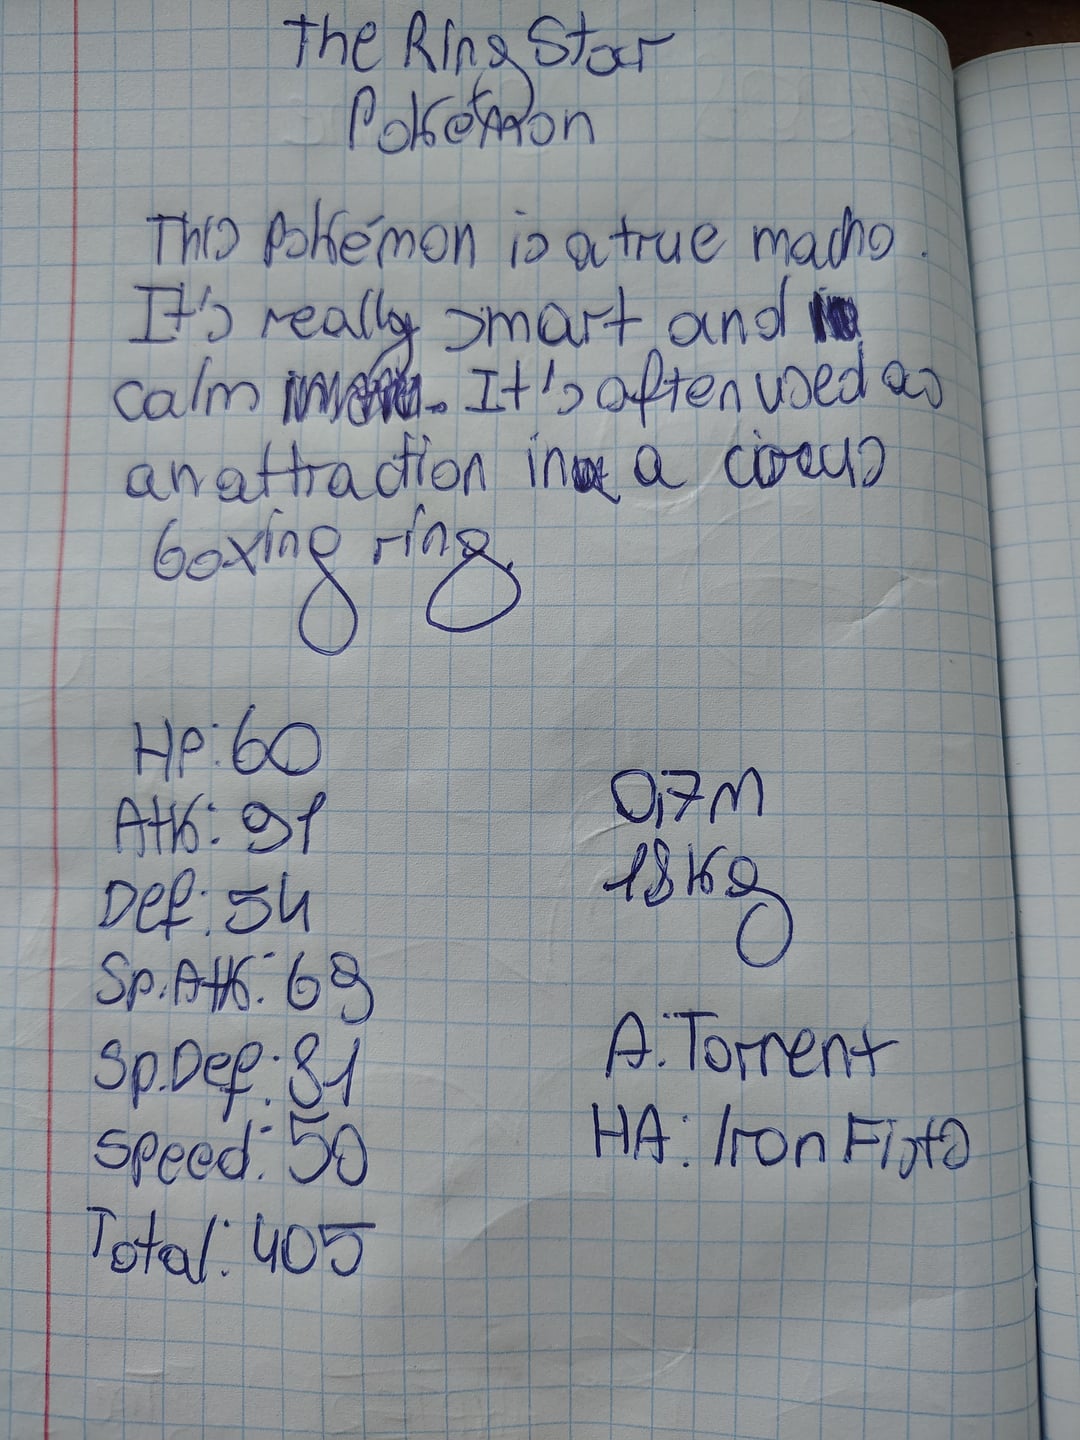 The Ring Star
Pokémon
This Pokémon is a true macho.
It's really smart and
calm. It's often used as
an attraction in a circus
boxing ring.
Hp: 60
Atk: 91
Def: 54
Sp.Atk: 69
Sp.Def: 81
Speed: 50
Total: 405
0,7m
18kg
A: Torrent
HA: Iron Fists